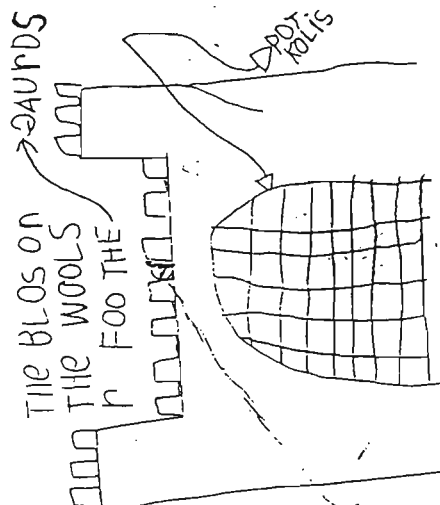 THE BLOS On
THE WOOLS
r FOO THE
GAUrDS
POT
KOLIS